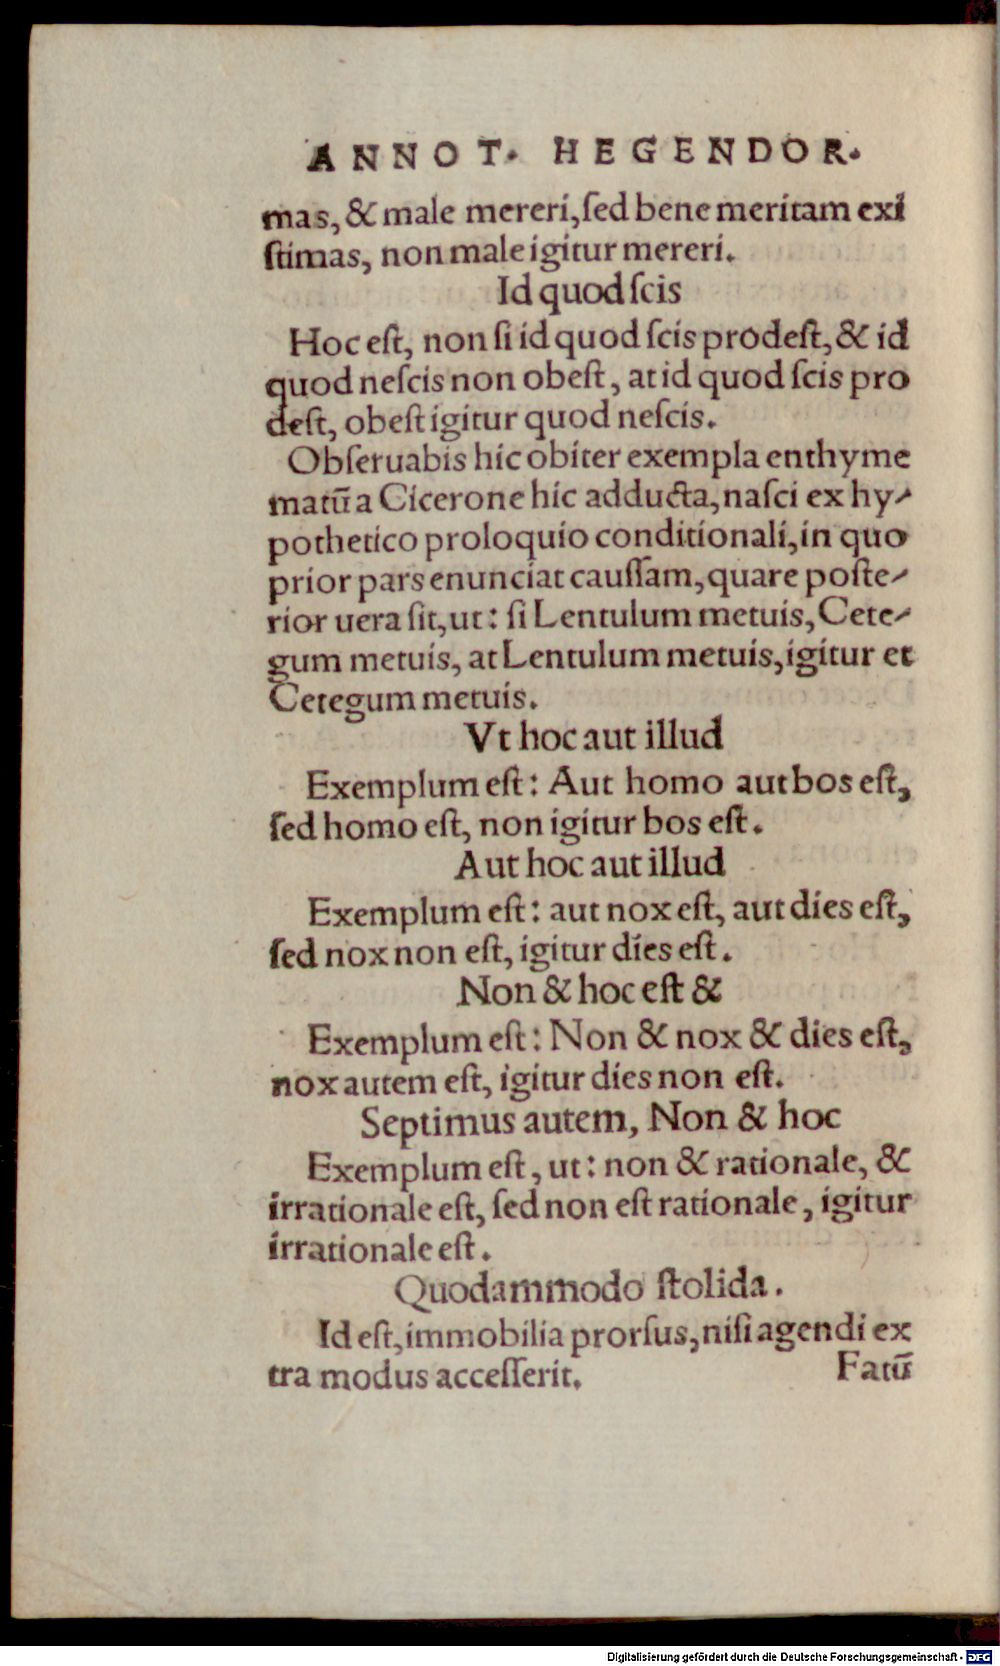 ANNOT. HEGENDOR.
mas, & male mereri, ſed bene meritam exi
ſtimas, non male igitur mereri.
Id quod ſcis
Hoc eſt, non ſi id quod ſcis prodeſt, & id
quod neſcis non obeſt, at id quod ſcis pro
deſt, obeſt igitur quod neſcis.
Obſeruabis hic obiter exempla enthyme
matū a Cicerone hic adducta, naſci ex hy-
pothetico proloquio conditionali, in quo
prior pars enunciat cauſſam, quare poſte-
rior uera ſit, ut: ſi Lentulum metuis, Cete-
gum metuis, at Lentulum metuis, igitur et
Cetegum metuis.
Vt hoc aut illud
Exemplum eſt: Aut homo aut bos eſt,
ſed homo eſt, non igitur bos eſt.
Aut hoc aut illud
Exemplum eſt: aut nox eſt, aut dies eſt,
ſed nox non eſt, igitur dies eſt.
Non & hoc eſt &
Exemplum eſt: Non & nox & dies eſt,
nox autem eſt, igitur dies non eſt.
Septimus autem, Non & hoc
Exemplum eſt, ut: non & rationale, &
irrationale eſt, ſed non eſt rationale, igitur
irrationale eſt.
Quodammodo ſtolida.
Id eſt, immobilia prorſus, niſi agendi ex
tra modus acceſſerit. Fatū
Digitalisierung gefördert durch die Deutsche Forschungsgemeinschaft - DFG